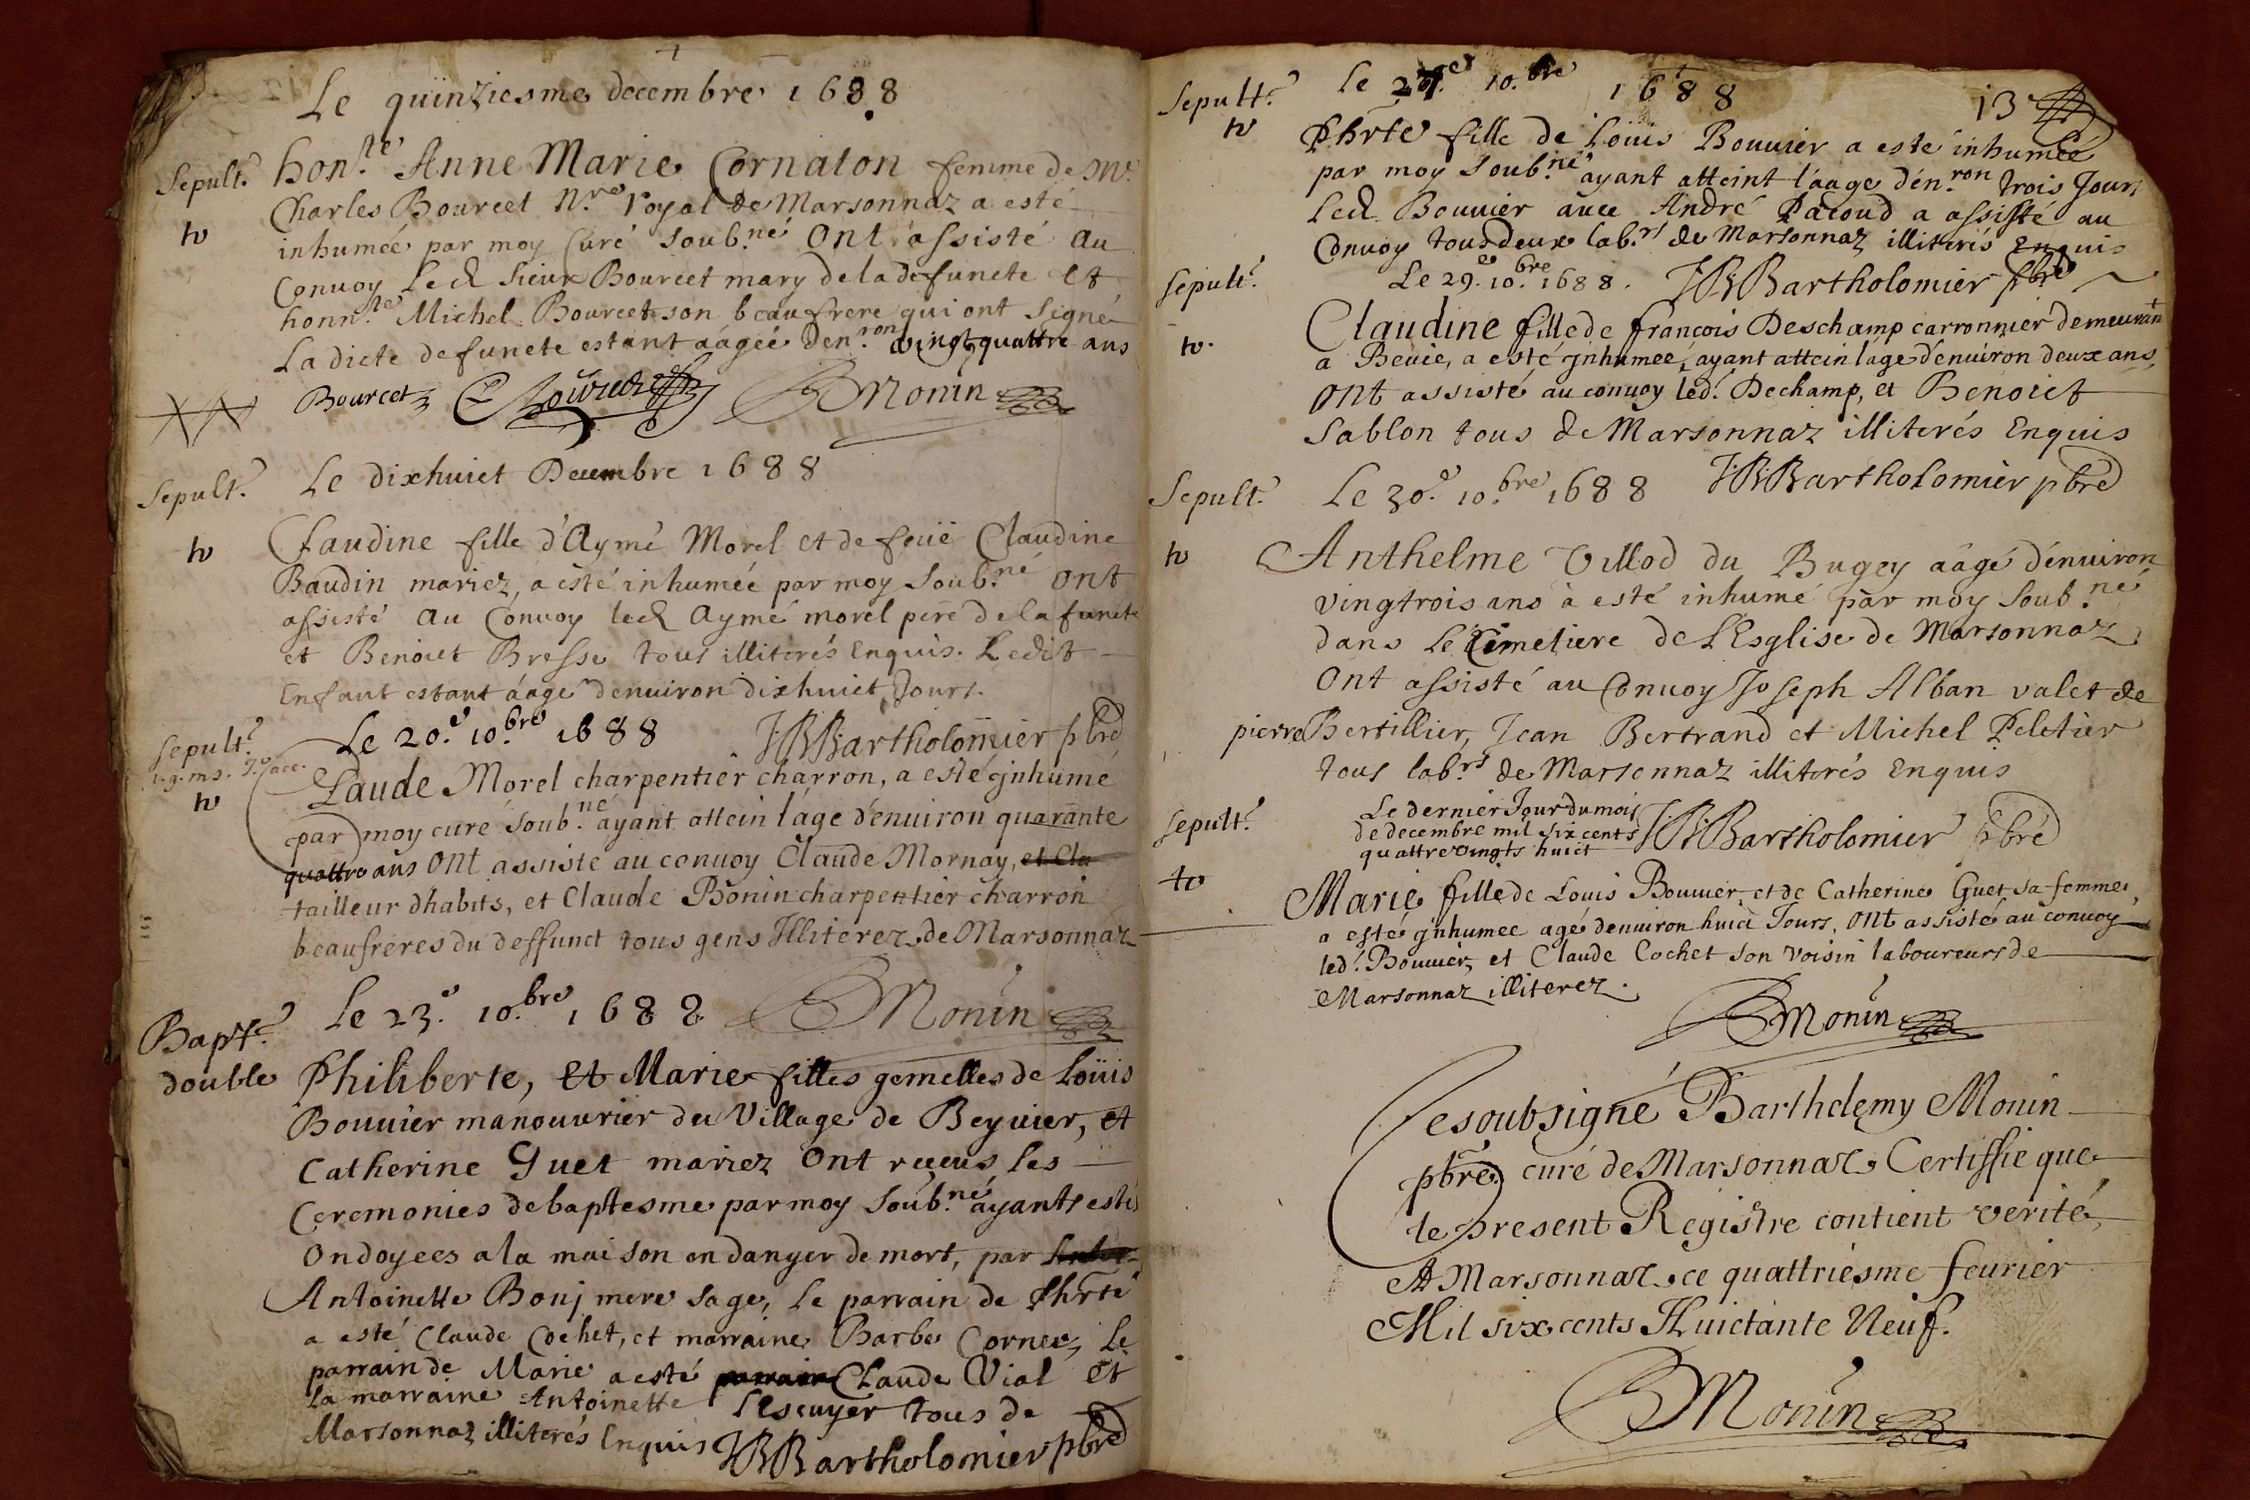 Le quinziesme decembre 1688
Sepult.e hon.te Anne Marie Cornaton femme de Mr.
Charles Bourcet N.re royal de Marsonnaz a esté
inhumée par moy Curé soub.né Ont assisté au
Convoy Led. sieur Bourcet mary de la defuncte et
honn.te Michel Bourcet son beaufrere qui ont signé
La dicte defuncte estant áagée den.ron vingt quattre ans
Bourcet BMonin
Sepult.e Le dixhuict Decembre 1688
Claudine fille d'Aymé Morel et de feüe Claudine
Baudin mariez, a esté inhumée par moy soub.né ont
assisté au Convoy led. Aymé morel pere de la functe
et Benoict Bresse tous illiterés Enquis. Ledit
Enfant estant áagé denuiron dixhuict Jours.
Sepult.e Le 20.e 10.bre 1688 JBBartholomier pbre
Claude Morel charpentier charron, a esté jnhumé
par moy curé soub.né ayant attein láge d'enuiron quarante
quattre ans ont assisté au conuoy Claude Mornay, et Cla
tailleur dhabits, et Claude Bonin charpentier charron
beaufreres du deffunct tous gens Illiterez de Marsonnaz
Bapt.e Le 23.e 10.bre 1688 BMonin
double Philiberte, Et Marie filles gemelles de Loüis
Bouuier manouurier du Village de Beyuier, et
Catherine Guet mariez ont receus les
Ceremonies de baptesme par moy soub.né ayants estés
Ondoyees a la maison en danger de mort, par
Antoinette Bonj mere sage, le parrain de Phrte
a esté Claude Cochet, et marraine Barbe Cornet, Le
parrain de Marie a esté parrain Claude Vial et
la marraine Antoinette Lescuyer tous de
Marsonnaz illiterés Enquis JBBartholomier pbre
Sepult.e Le 27.e 10.bre 1688 13
Phrte fille de Loüis Bouuier a esté inhumée
par moy soub.né ayant atteint l'aage d'én.ron trois Jours
Led. Bouuier auec André Pacoud a assisté au
Convoy tous deux lab.rs de Marsonnaz illiterés Enquis
Sepult.e Le 29.e 10.bre 1688. JBBartholomier pbre
Claudine fille de françois Deschamp carronnier demeurant
a Beuie, a esté jnhumee, ayant attein lage d'enuiron deux ans,
Ont assisté au conuoy led. Dechamp, et Benoict
Sablon tous de Marsonnaz illiterés Enquis
Sepult.e Le 30.e 10.bre 1688 JBBartholomier pbre
Anthelme Villod du Bugey aágé d'énuiron
vingtrois ans à esté inhumé par moy soub.né
dans le Cimetiere de L'Esglise de Marsonnaz
Ont assisté au Conuoy Joseph Alban valet de
pierre Bertillier, Jean Bertrand et Michel Peletier
tous lab.rs de Marsonnaz illiterés Enquis
Sepult.e Le dernier Jour du mois
de decembre mil six cents JBBartholomier pbre
quattre vingts huict
Marie fille de Louis Bouuier, et de Catherine Guet sa femme,
a esté jnhumee agé denuiron huict Jours, ont assisté au conuoy
led. Bouuier, et Claude Cochet son voisin laboureurs de
Marsonnaz illiterez.
BMonin
Je soubsigné Barthelemy Monin
pbre curé de Marsonnaz Certiffie que
le present Registre contient verité,
A Marsonnaz ce quattriesme feurier
Mil six cents Huictante Neuf.
BMonin